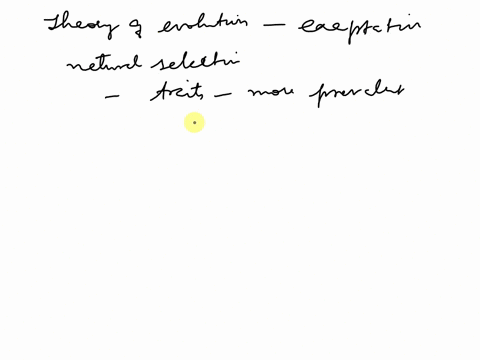 Theory of evolution — exaptation
natural selection
— traits — more prevalent